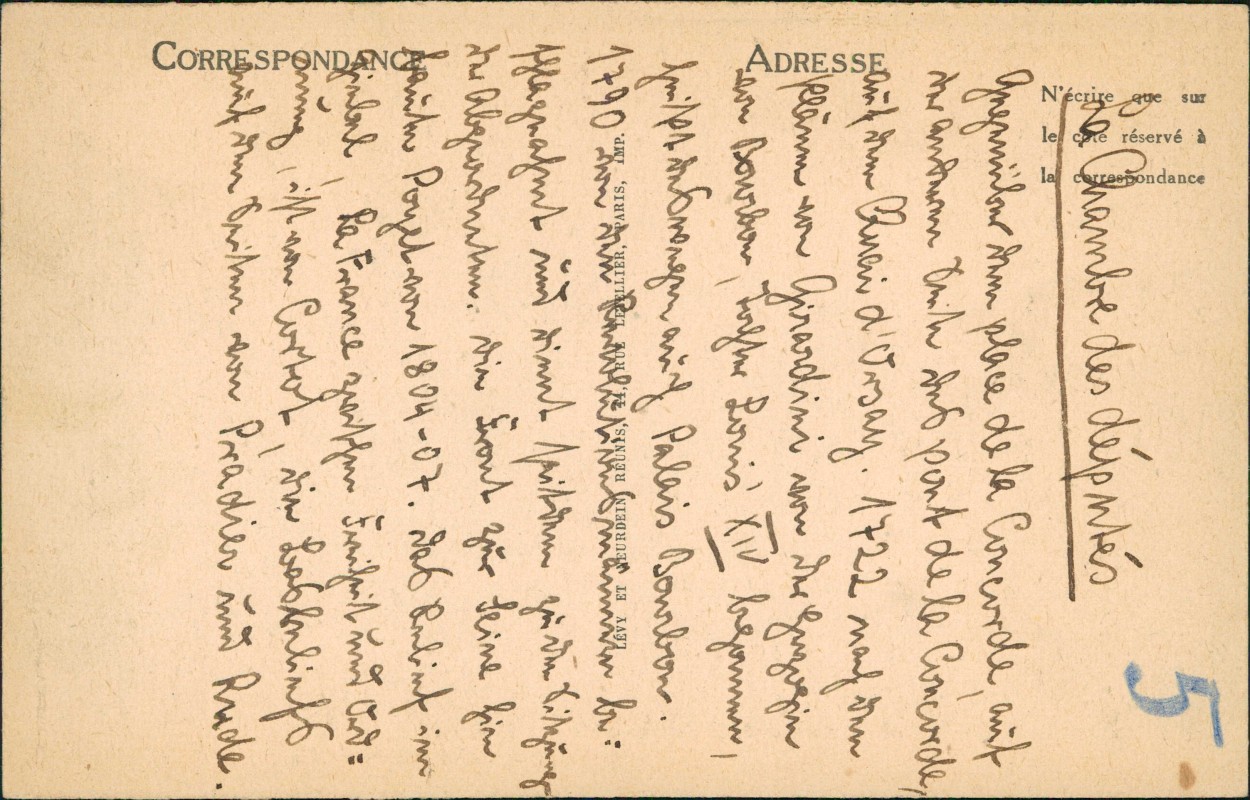 CORRESPONDANCE
ADRESSE
N'écrire que sur
le côté réservé à
la correspondance
LÉVY ET NEURDEIN RÉUNIS, 44, RUE LETELLIER, PARIS, IMP.
5
La Chambre des députés
gegenüber dem place de la Concorde, auf
der andern Seite des pont de la Concorde,
auf dem Quai d'Orsay. 1722 nach dem
Pläne von Girardini von der Herzogin
von Bourbon, Tochter Louis' XIV begonnen,
heißt deswegen auch Palais Bourbon.
1790 von den Revolutionsmännern be-
schlagnahmt und dient seitdem zu den Sitzung
der Abgeordneten. Die Front zur Seine hin
baute Poyet von 1804-07. Das Relief im
Giebel, La France zwischen Freiheit und Ord-
nung, ist von Cortot, die Basreliefs
auf den Seiten von Pradier und Rude.